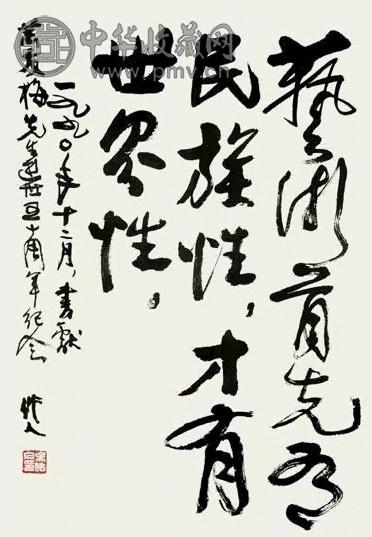 中华收藏网
www.pmv.cn
藝術首先有
民族性，才有
世界性，
一九九〇年十二月，書獻
梅先生逝世十周年纪念
作人